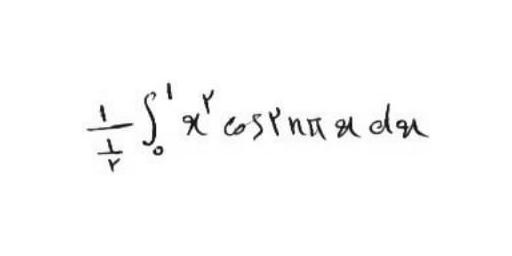 \frac{1}{\frac{1}{۲}} \int_0^1 x^۲ \cos ۲nπx dx